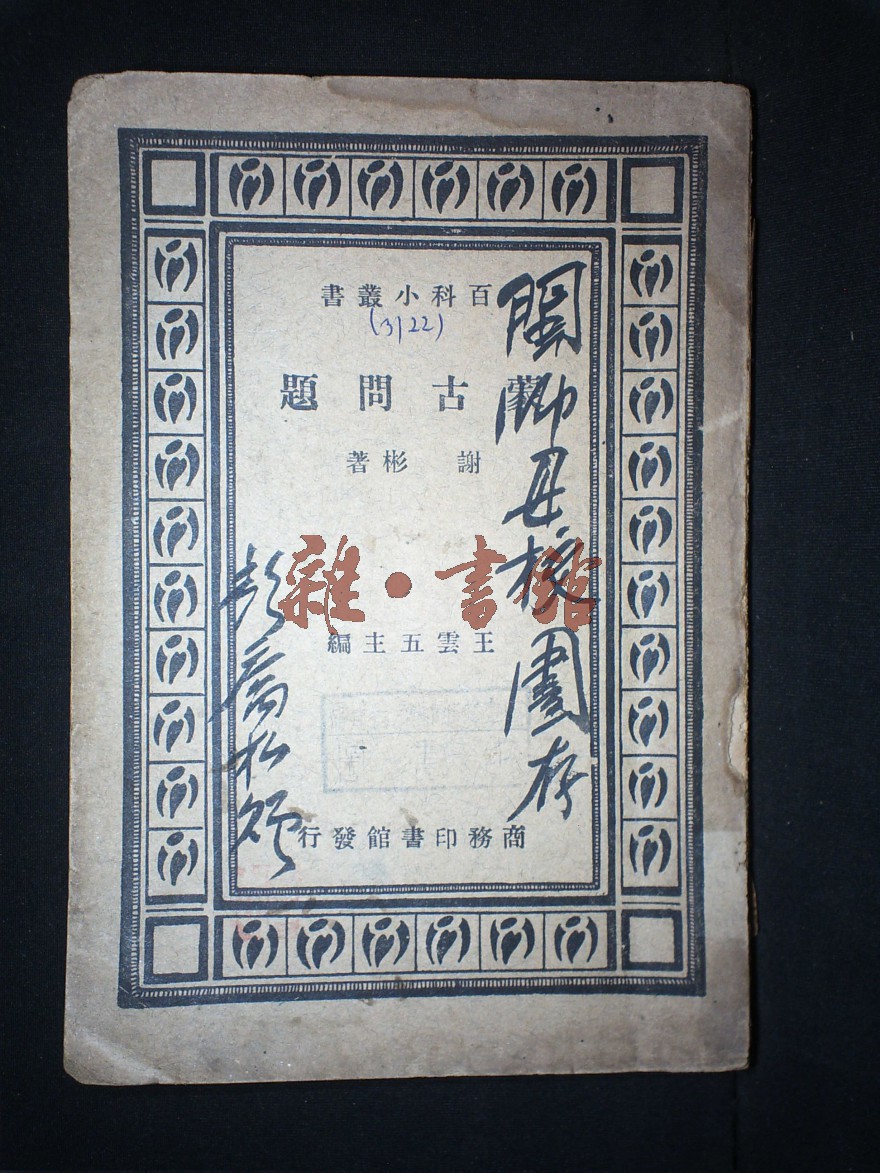 百科小叢書
(3122)
蒙古問題
謝 彬著
王雲五主編
商務印書館發行
閩師母校圖存
彭喬松
雜·書館